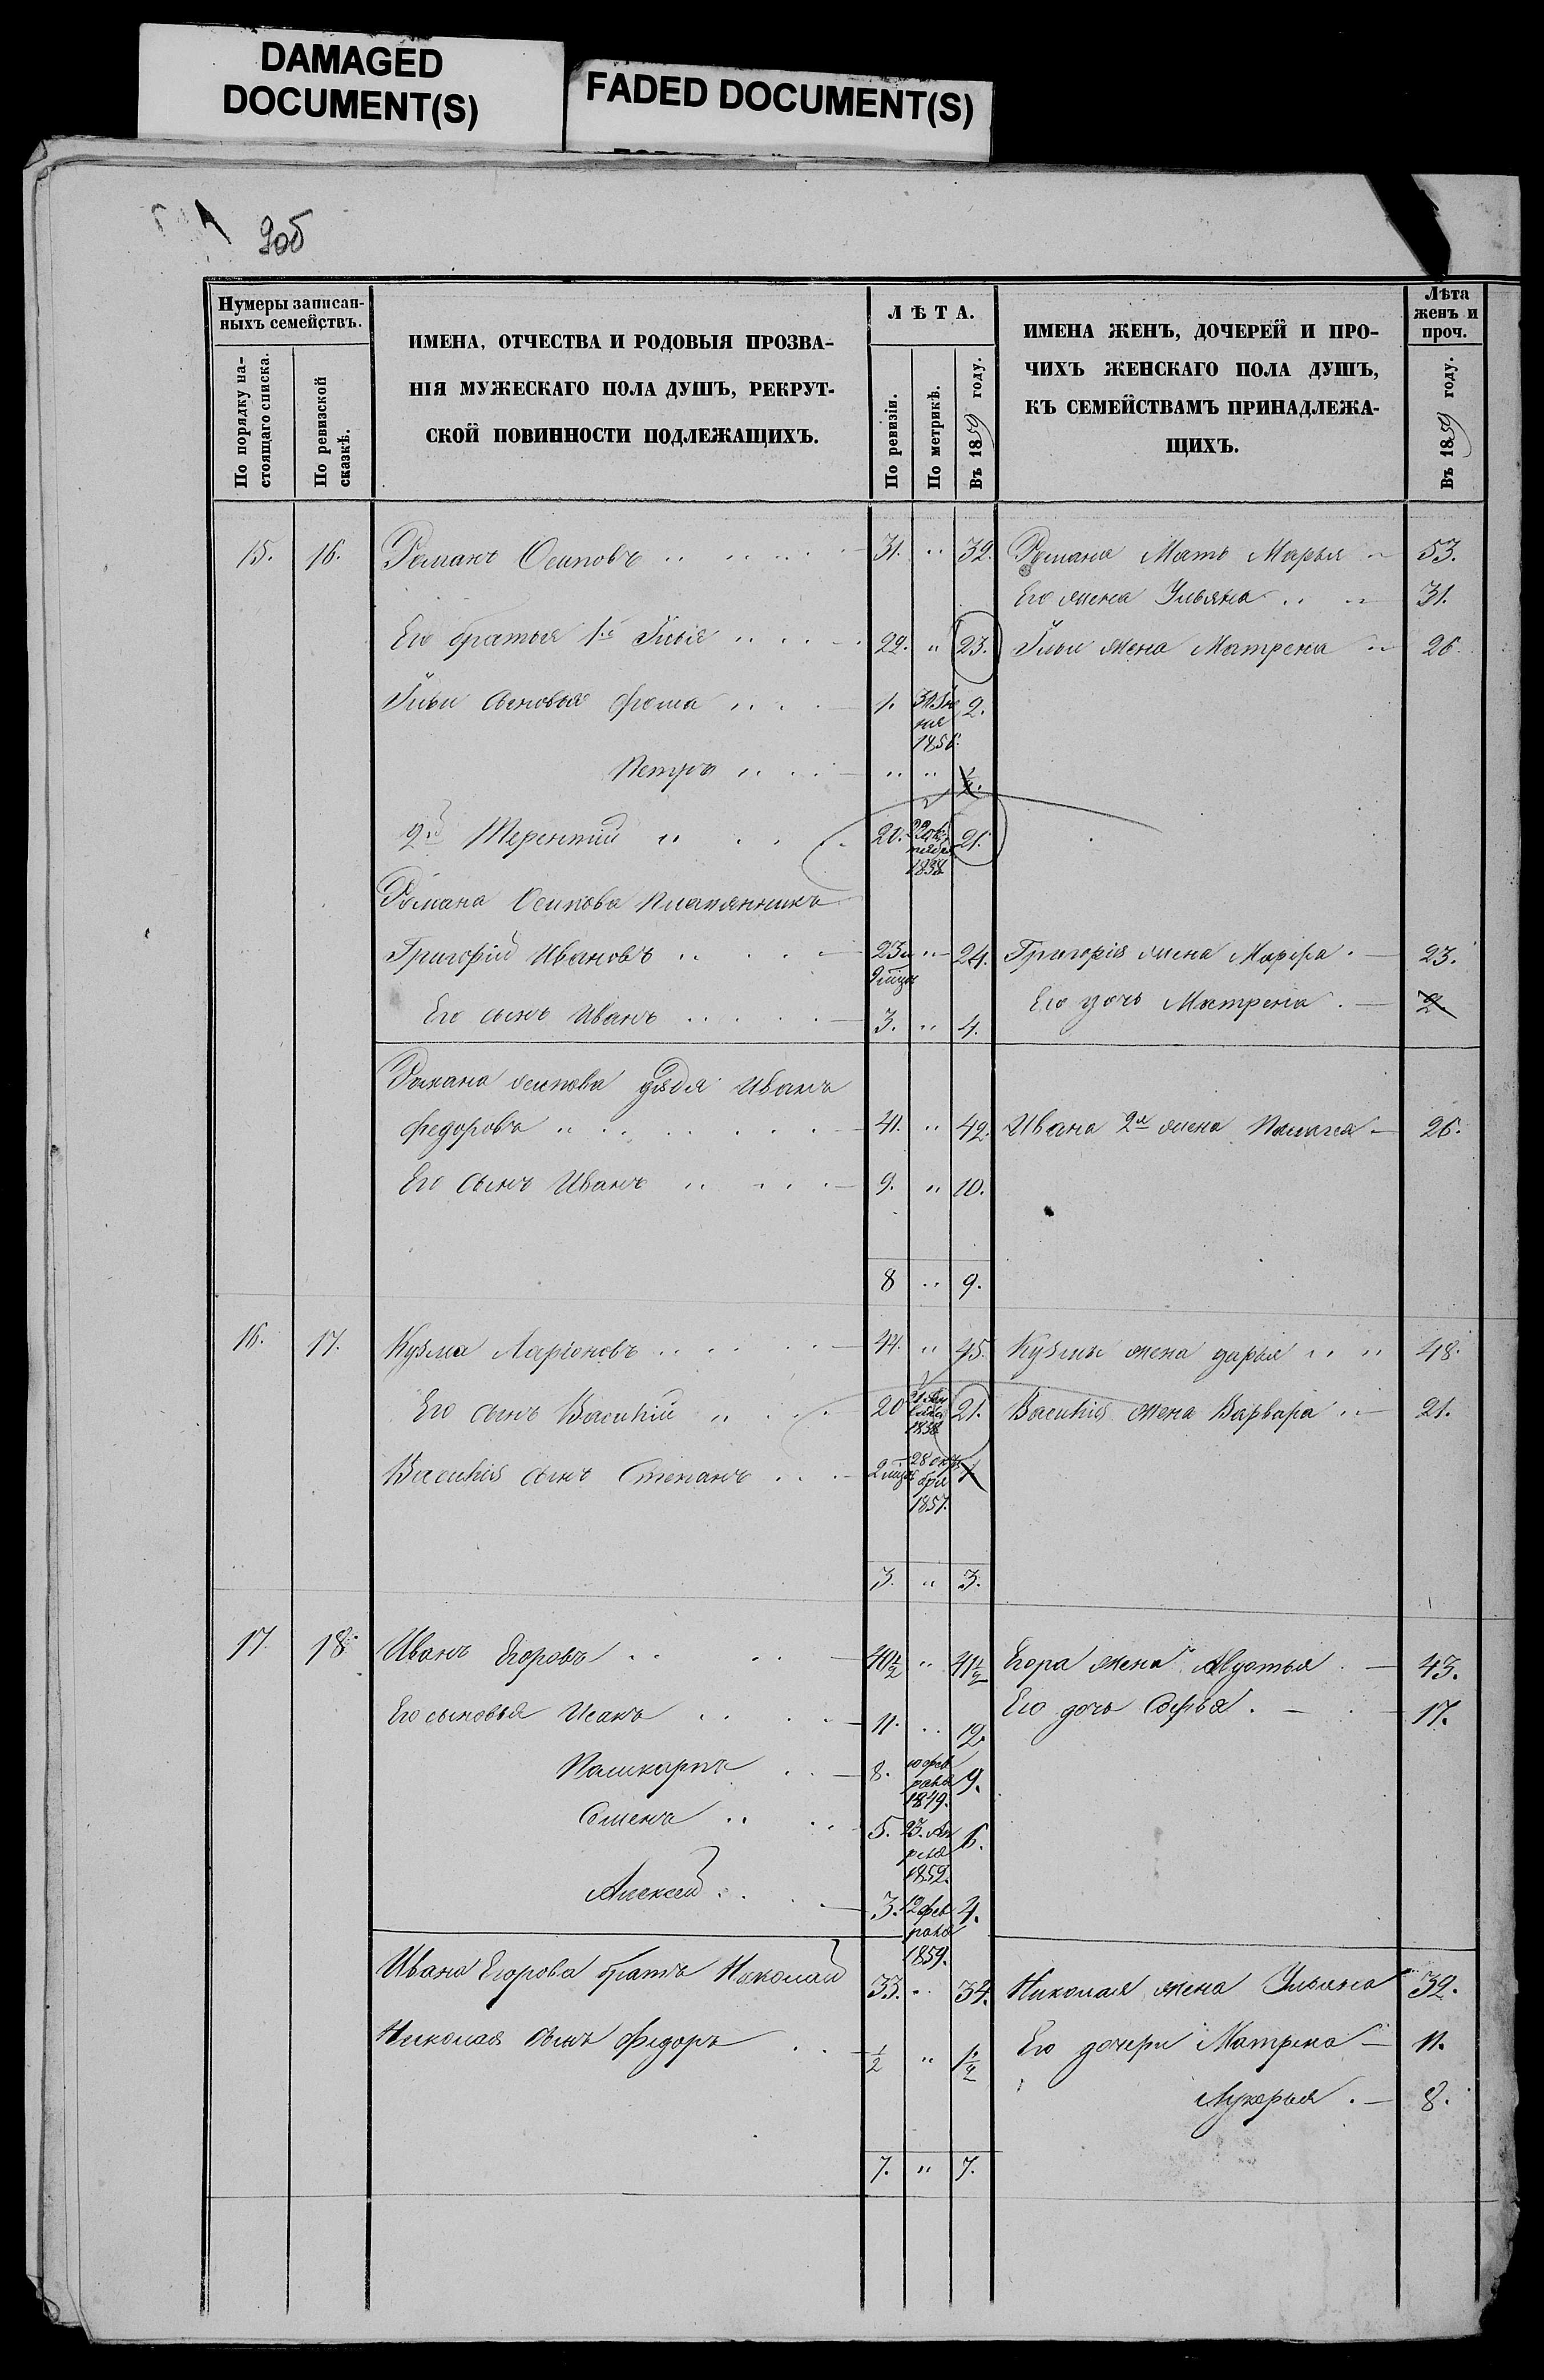 DAMAGED
DOCUMENT(S)
FADED DOCUMENT(S)
Нумеры записан-
ныхъ семействъ.
По порядку на-
стоящаго списка.
По ревизской
сказкѣ.
ИМЕНА, ОТЧЕСТВА И РОДОВЫЯ ПРОЗВА-
НІЯ МУЖЕСКАГО ПОЛА ДУШЪ, РЕКРУТ-
СКОЙ ПОВИННОСТИ ПОДЛЕЖАЩИХЪ.
ЛѢТА.
По ревизіи.
По метрикѣ.
Въ 1859 году.
ИМЕНА ЖЕНЪ, ДОЧЕРЕЙ И ПРО-
ЧИХЪ ЖЕНСКАГО ПОЛА ДУШЪ,
КЪ СЕМЕЙСТВАМЪ ПРИНАДЛЕЖА-
ЩИХЪ.
Лѣта
женъ и
проч.
Въ 1859 году.
15. 16. Романъ Осиповъ 31. " 32. Романа Мать Марья 53.
Его жена Ульяна 31.
Его братья 1й Илья 22. " 23. Ильи жена Матрена 26.
Ильи сыновья Фома 1. 1856. 2.
Петръ " "
2й Терентий 20. 1838 21.
Романа Осипова племянникъ
Григорій Ивановъ 23 " 24. Григорія жена Марфа 23.
9 мцъ
Его дочь Матрена 2.
Его сынъ Иванъ 3. " 4.
Романа осипова дядя Иванъ
Федоровъ 41. " 42. Ивана 2я жена 26.
Его сынъ Иванъ 9. " 10.
8 " 9.
16. 17. Кузма Ларіоновъ 44. " 45. Кузмы жена дарья 48.
Его сынъ Василій 20 1838 21. Василія жена Варвара 21.
Василія сынъ Степанъ 2 мцъ 28 октября 1857.
3. " 3.
17. 18. Иванъ Егоровъ 40½ " 41½ Егора жена Авдотья 43.
Его дочь Софья 17.
Его сыновья Исакъ 11. " 12.
8. 10 февраля 1849. 9.
Семенъ 5. 23. Апреля 1852. 6.
Алексей 3. 12 февраля 1859. 4.
Ивана Егорова братъ Николай 33. " 34. Николая жена Ульяна 32.
Николая сынъ Федоръ ½ " 1½ Его дочери Матрена 11.
Лукерья 8.
7. " 7.